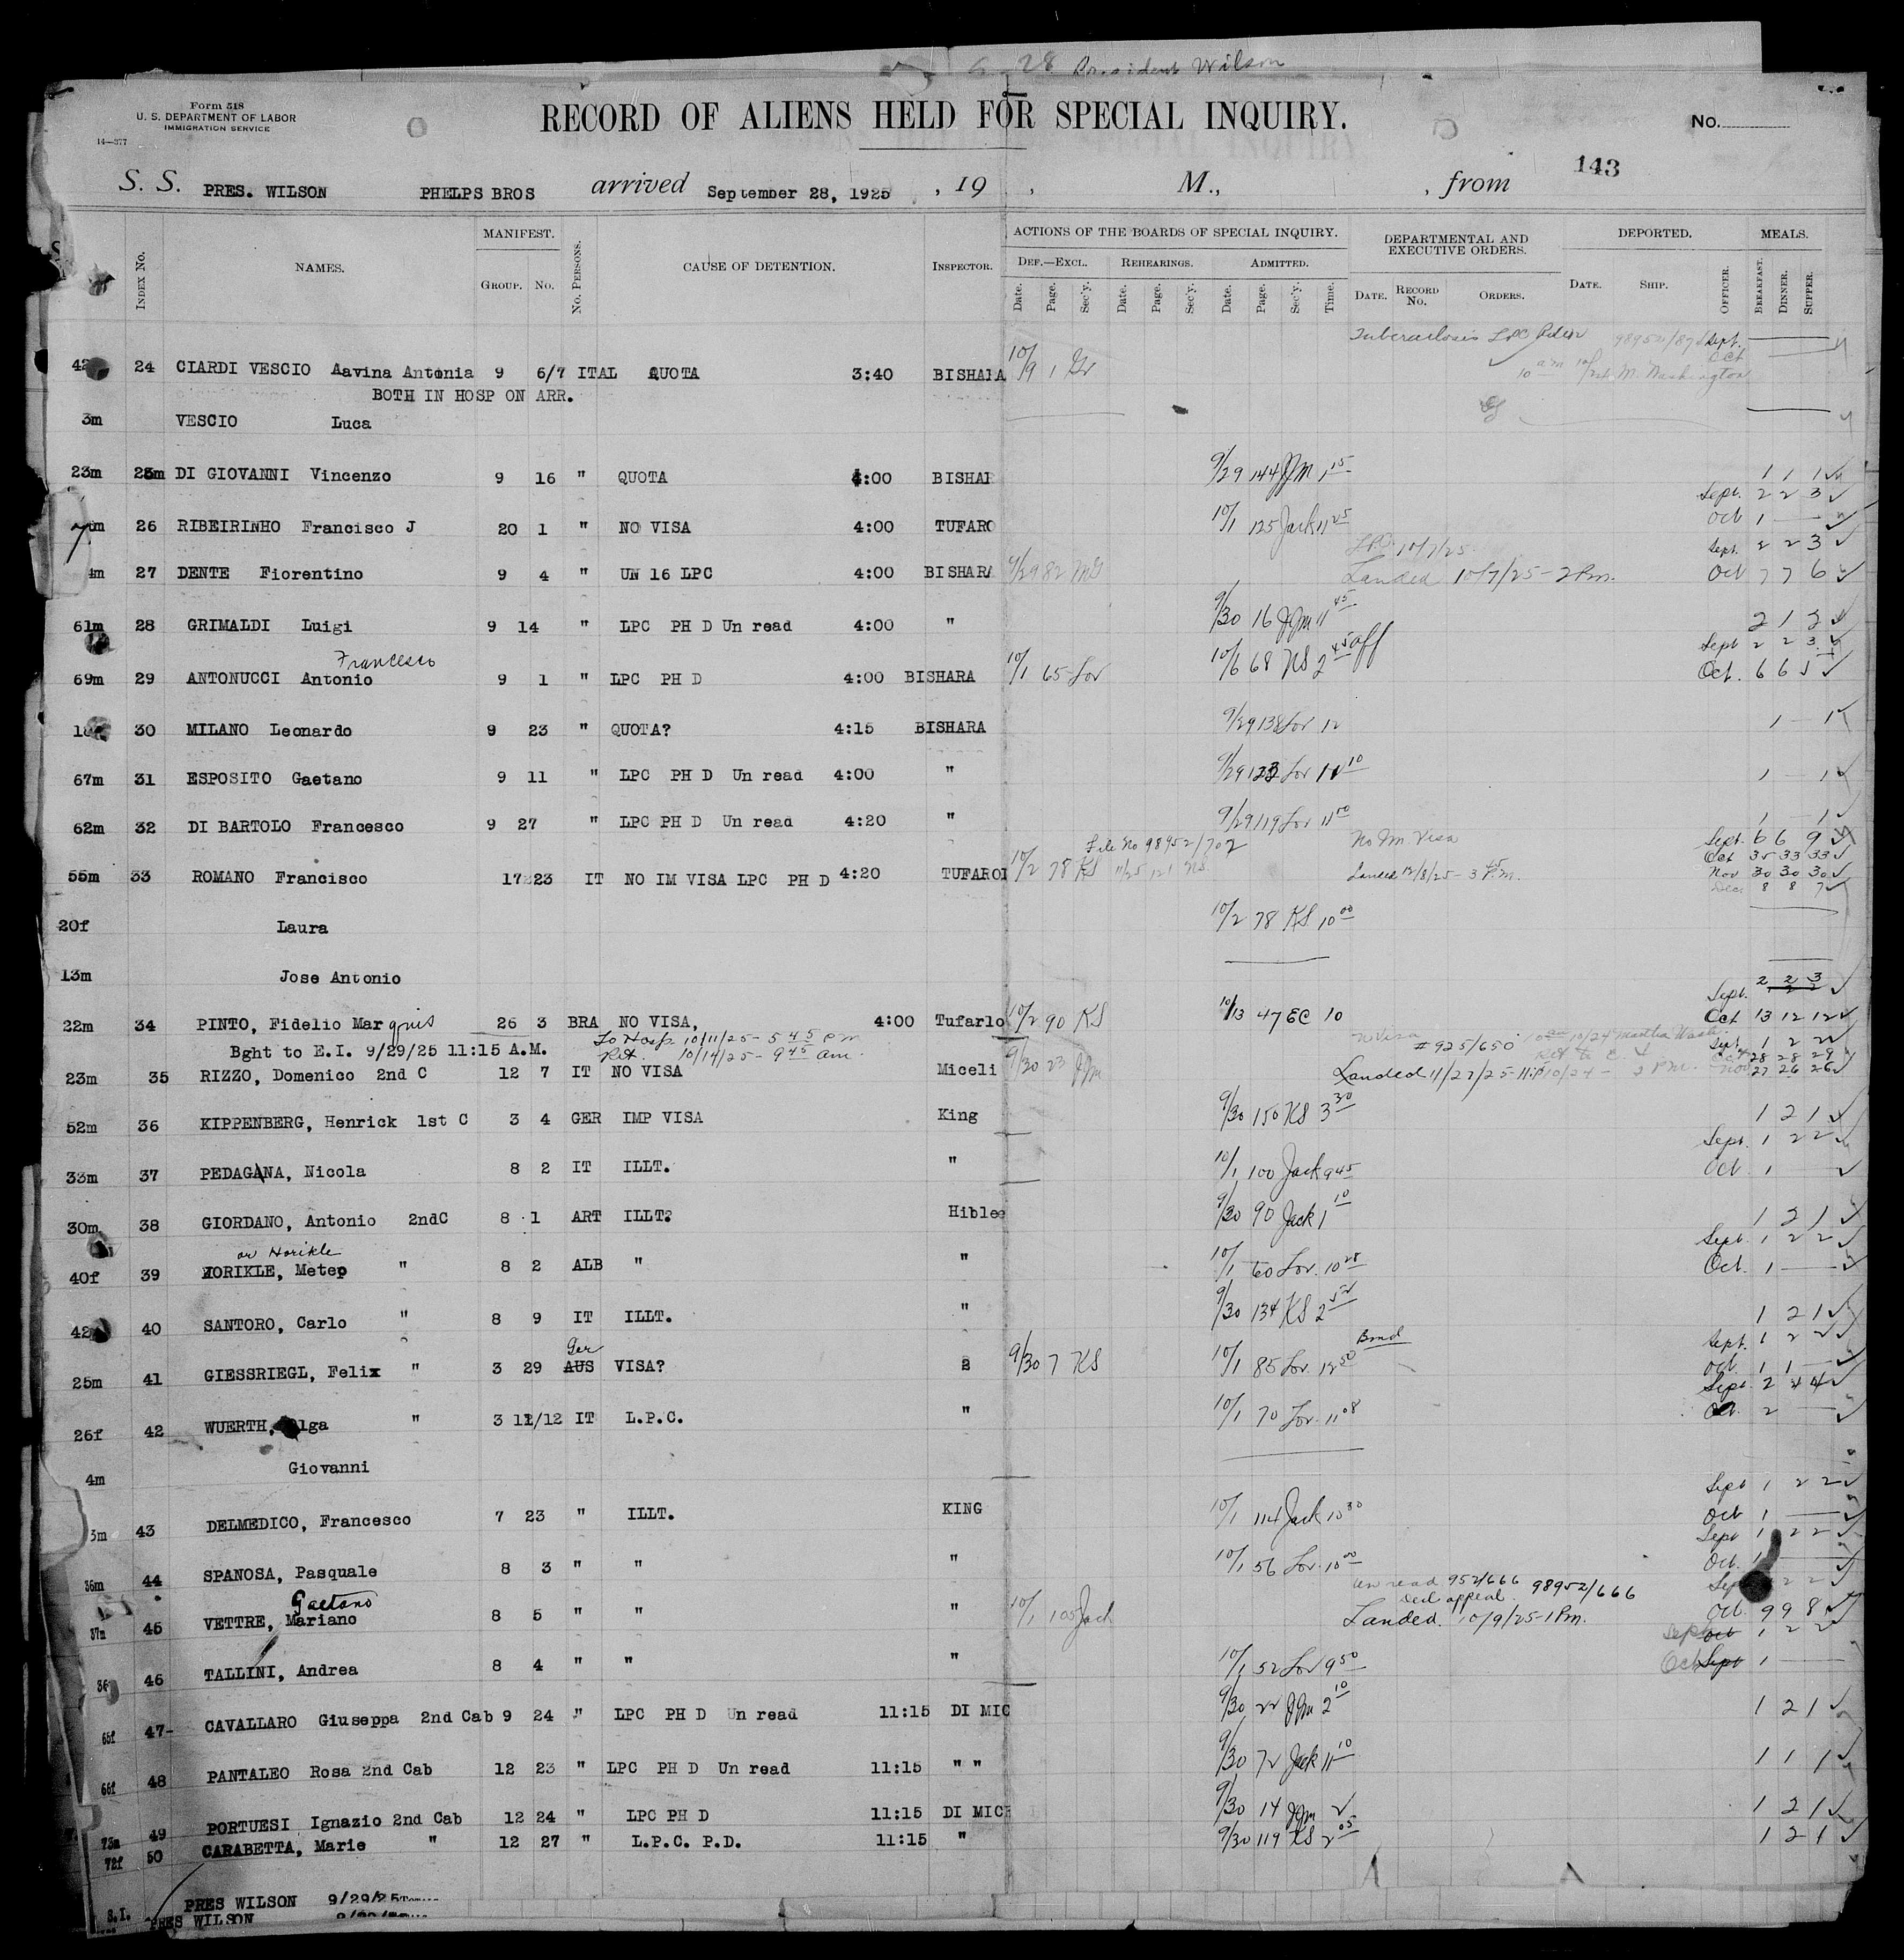 28 President Wilson
Form 518
U. S. DEPARTMENT OF LABOR
IMMIGRATION SERVICE
14—377
RECORD OF ALIENS HELD FOR SPECIAL INQUIRY.
No.
143
S. S. PRES. WILSON PHELPS BROS arrived September 28, 1925 , 19 , M., , from
INDEX No. NAMES. MANIFEST. GROUP. No. No. PERSONS. CAUSE OF DETENTION. INSPECTOR. ACTIONS OF THE BOARDS OF SPECIAL INQUIRY. DEF.—EXCL. Date. Page. Sec'y. REHEARINGS. Date. Page. Sec'y. ADMITTED. Date. Page. Sec'y. Time. DEPARTMENTAL AND EXECUTIVE ORDERS. DATE. RECORD No. ORDERS. DEPORTED. DATE. SHIP. OFFICER. MEALS. BREAKFAST. DINNER. SUPPER.
Tuberculosis LPC Sept.
42 24 CIARDI VESCIO Aavina Antonia 9 6/7 ITAL QUOTA 3:40 BISHARA 10/9 1 Oct
BOTH IN HOSP ON ARR.
3m VESCIO Luca
23m 25m DI GIOVANNI Vincenzo 9 16 " QUOTA 4:00 BISHAR 9/29 144 JJM 1 15 1 1 1
Sept. 2 2 3
26 RIBEIRINHO Francisco J 20 1 " NO VISA 4:00 TUFARO 10/1 125 Jack 11 25 Oct 1
LPC 10/7/25 Sept. 2 2 3
4m 27 DENTE Fiorentino 9 4 " UN 16 LPC 4:00 BISHARA 9/29 82 Landed 10/7/25 - 2 Pm. Oct 7 7 6
61m 28 GRIMALDI Luigi 9 14 " LPC PH D Un read 4:00 " 9/30 16 JJM 11 45 2 1 2
Francesco Sept 2 2 3
69m 29 ANTONUCCI Antonio 9 1 " LPC PH D 4:00 BISHARA 10/1 65 Lov 10/6 68 KS 2 45 off Oct. 6 6 5
30 MILANO Leonardo 9 23 " QUOTA? 4:15 BISHARA 9/29 138 Lov 12 1 – 1
67m 31 ESPOSITO Gaetano 9 11 " LPC PH D Un read 4:00 " 9/29 Lov 11 10 1 – 1
62m 32 DI BARTOLO Francesco 9 27 " LPC PH D Un read 4:20 " 9/29 119 Lov 11 00 1 – 1
File No 98952/702 No Im Visa Sept. 6 6 9
Oct 35 33 33
55m 33 ROMANO Francisco 17 23 IT NO IM VISA LPC PH D 4:20 TUFAROL 10/2 78 KS 11/25 121 KS Landed 12/8/25 - 3 P.m. Nov 30 30 30
Dec. 8 8 7
20f Laura 10/2 78 KS 10 00
13m Jose Antonio
Sept. 2 2 3
22m 34 PINTO, Fidelio Marquis 26 3 BRA NO VISA, 4:00 Tufarlo 10/2 90 KS 10/13 47 EC 10 Oct 13 12 12
To Hosp 10/11/25 - 5 45 P m
Bght to E.I. 9/29/25 11:15 A.M. Ret. 10/14/25 - 9 45 am. #925/650 Sept. 1 2 2
Oct 28 28 29
23m 35 RIZZO, Domenico 2nd C 12 7 IT NO VISA Miceli 9/30 23 JJm Landed 11/27/25 Nov 27 26 26
52m 36 KIPPENBERG, Henrick 1st C 3 4 GER IMP VISA King 9/30 150 KS 3 30 1 2 1
Sept. 1 2 2
33m 37 PEDAGANA, Nicola 8 2 IT ILLT. " 10/1 100 Jack 9 45 Oct 1
30m 38 GIORDANO, Antonio 2ndC 8 1 ART ILLT? Hiblee 9/30 90 Jack 1 10 1 2 1
or Horikle Sept. 1 2 2
40f 39 ZORIKLE, Metep " 8 2 ALB " " 10/1 60 Lov. 10 28 Oct. 1
42 40 SANTORO, Carlo " 8 9 IT ILLT. " 9/30 134 KS 2 52 1 2 1
Ger Bond Sept. 1 2 2
25m 41 GIESSRIEGL, Felix " 3 29 AUS VISA? 2 9/30 7 KS 10/1 85 Lov. 12 50 Oct 1 1
Sept. 2 4 4
26f 42 WUERTH, lga " 3 11/12 IT L.P.C. " 10/1 70 Lov. 11 08 Oct. 2
4m Giovanni
Sept 1 2 2
3m 43 DELMEDICO, Francesco 7 23 " ILLT. KING 10/1 114 Jack 10 30 Oct 1
Sept 1 2 2
36m 44 SPANOSA, Pasquale 8 3 " " " 10/1 56 Lov. 10 00 Oct. 1
Un read 952/666 98952/666
Gaetano Ded appeal. Sep 2 2
37m 45 VETTRE, Mariano 8 5 " " " 10/1 105 Jack Landed. 10/9/25 - 1 Pm. Oct. 9 9 8
Sept Oct 1 2 2
36 46 TALLINI, Andrea 8 4 " " " 10/1 52 Lov 9 50 Oct Sept 1
65f 47- CAVALLARO Giuseppa 2nd Cab 9 24 " LPC PH D Un read 11:15 DI MIC 9/30 22 JJm 2 10 1 2 1
66f 48 PANTALEO Rosa 2nd Cab 12 23 " LPC PH D Un read 11:15 " " 9/30 72 Jack 11 10 1 1 1
73m 49 PORTUESI Ignazio 2nd Cab 12 24 " LPC PH D 11:15 DI MICE 9/30 14 JJm 2 1 2 1
72f 50 CARABETTA, Marie " 12 27 " L.P.C. P.D. 11:15 " 9/30 119 KS 2 05 1 2 1
S.I. PRES WILSON 9/29/25
PRES WILSON